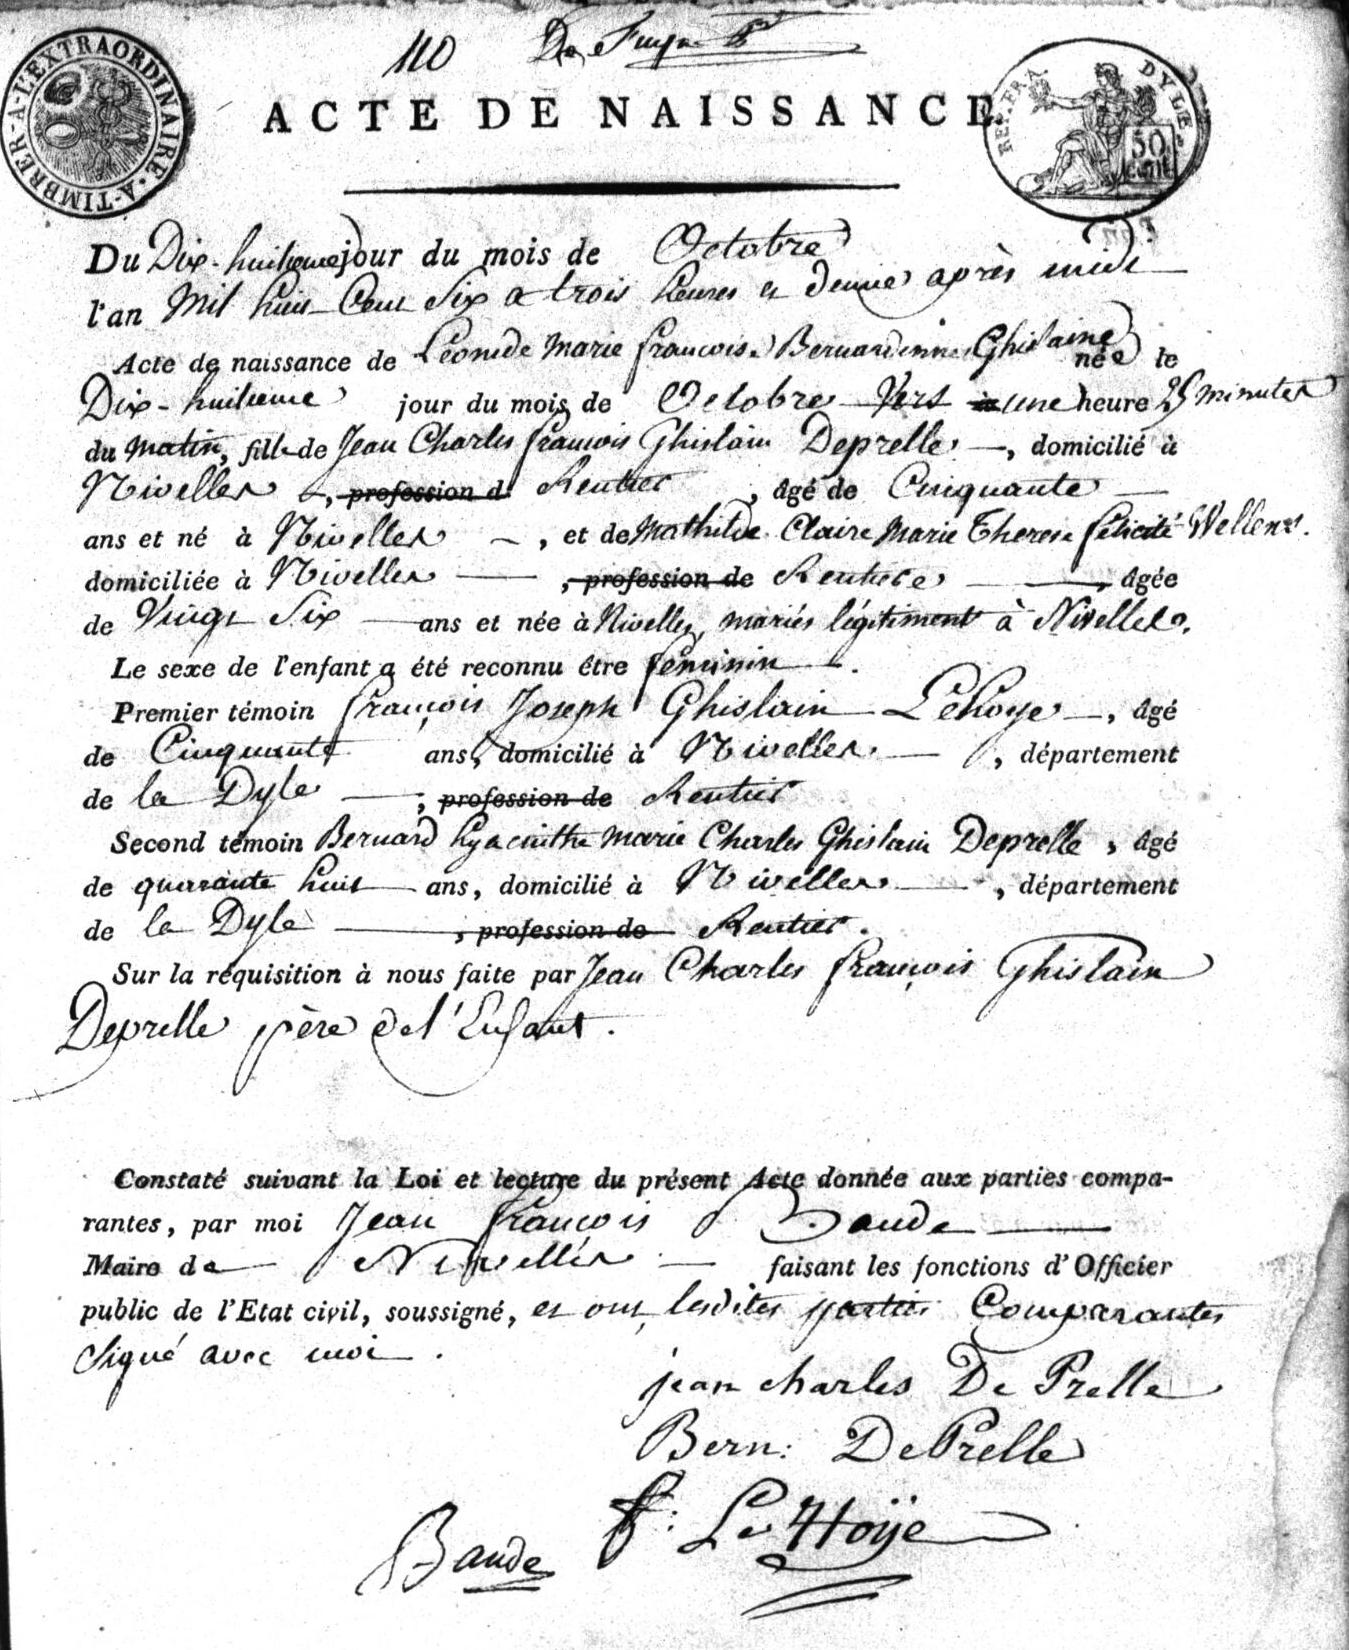 110
A-TIMBRER-A-L'EXTRAORDINAIRE
REP. FRA. DYLE
50 CENT
ACTE DE NAISSANCE
Du Dix-huitieme jour du mois de Octobre
l'an Mil huit Cent Six a trois heures et demie après midi
Acte de naissance de Léonide Marie françoise Bernardinne Ghislaine née le
Dix-huitieme jour du mois de Octobre Vers une heure 25 minutes
du matin, fille de Jean Charles françois Ghislain Deprelle, domicilié à
Nivelles, profession de Rentier, âgé de Cinquante
ans et né à Nivelles, et de Mathilde Claire Marie Therese félicité Wellens.
domiciliée à Nivelles, profession de Rentiere, âgée
de Vingt Six ans et née à Nivelles, mariés légitiment à Nivelles.
Le sexe de l'enfant a été reconnu être féminin.
Premier témoin françois Joseph Ghislain Lehoye, âgé
de Cinquante ans, domicilié à Nivelles, département
de la Dyle, profession de Rentier
Second témoin Bernard hyacinthe marie Charles Ghislain Deprelle, âgé
de quarante huit ans, domicilié à Nivelles, département
de la Dyle, profession de Rentier.
Sur la réquisition à nous faite par Jean Charles françois Ghislain
Deprelle père de l'Enfant.
Constaté suivant la Loi et lecture du présent Acte donnée aux parties compa-
rantes, par moi Jean françois Baude
Maire de Nivelles faisant les fonctions d'Officier
public de l'Etat civil, soussigné, et ont lesdites parties Comparantes
Signé avec moi.
jean charles De Prelle
Bern: DePrelle
f: Le Hoÿe
Baude